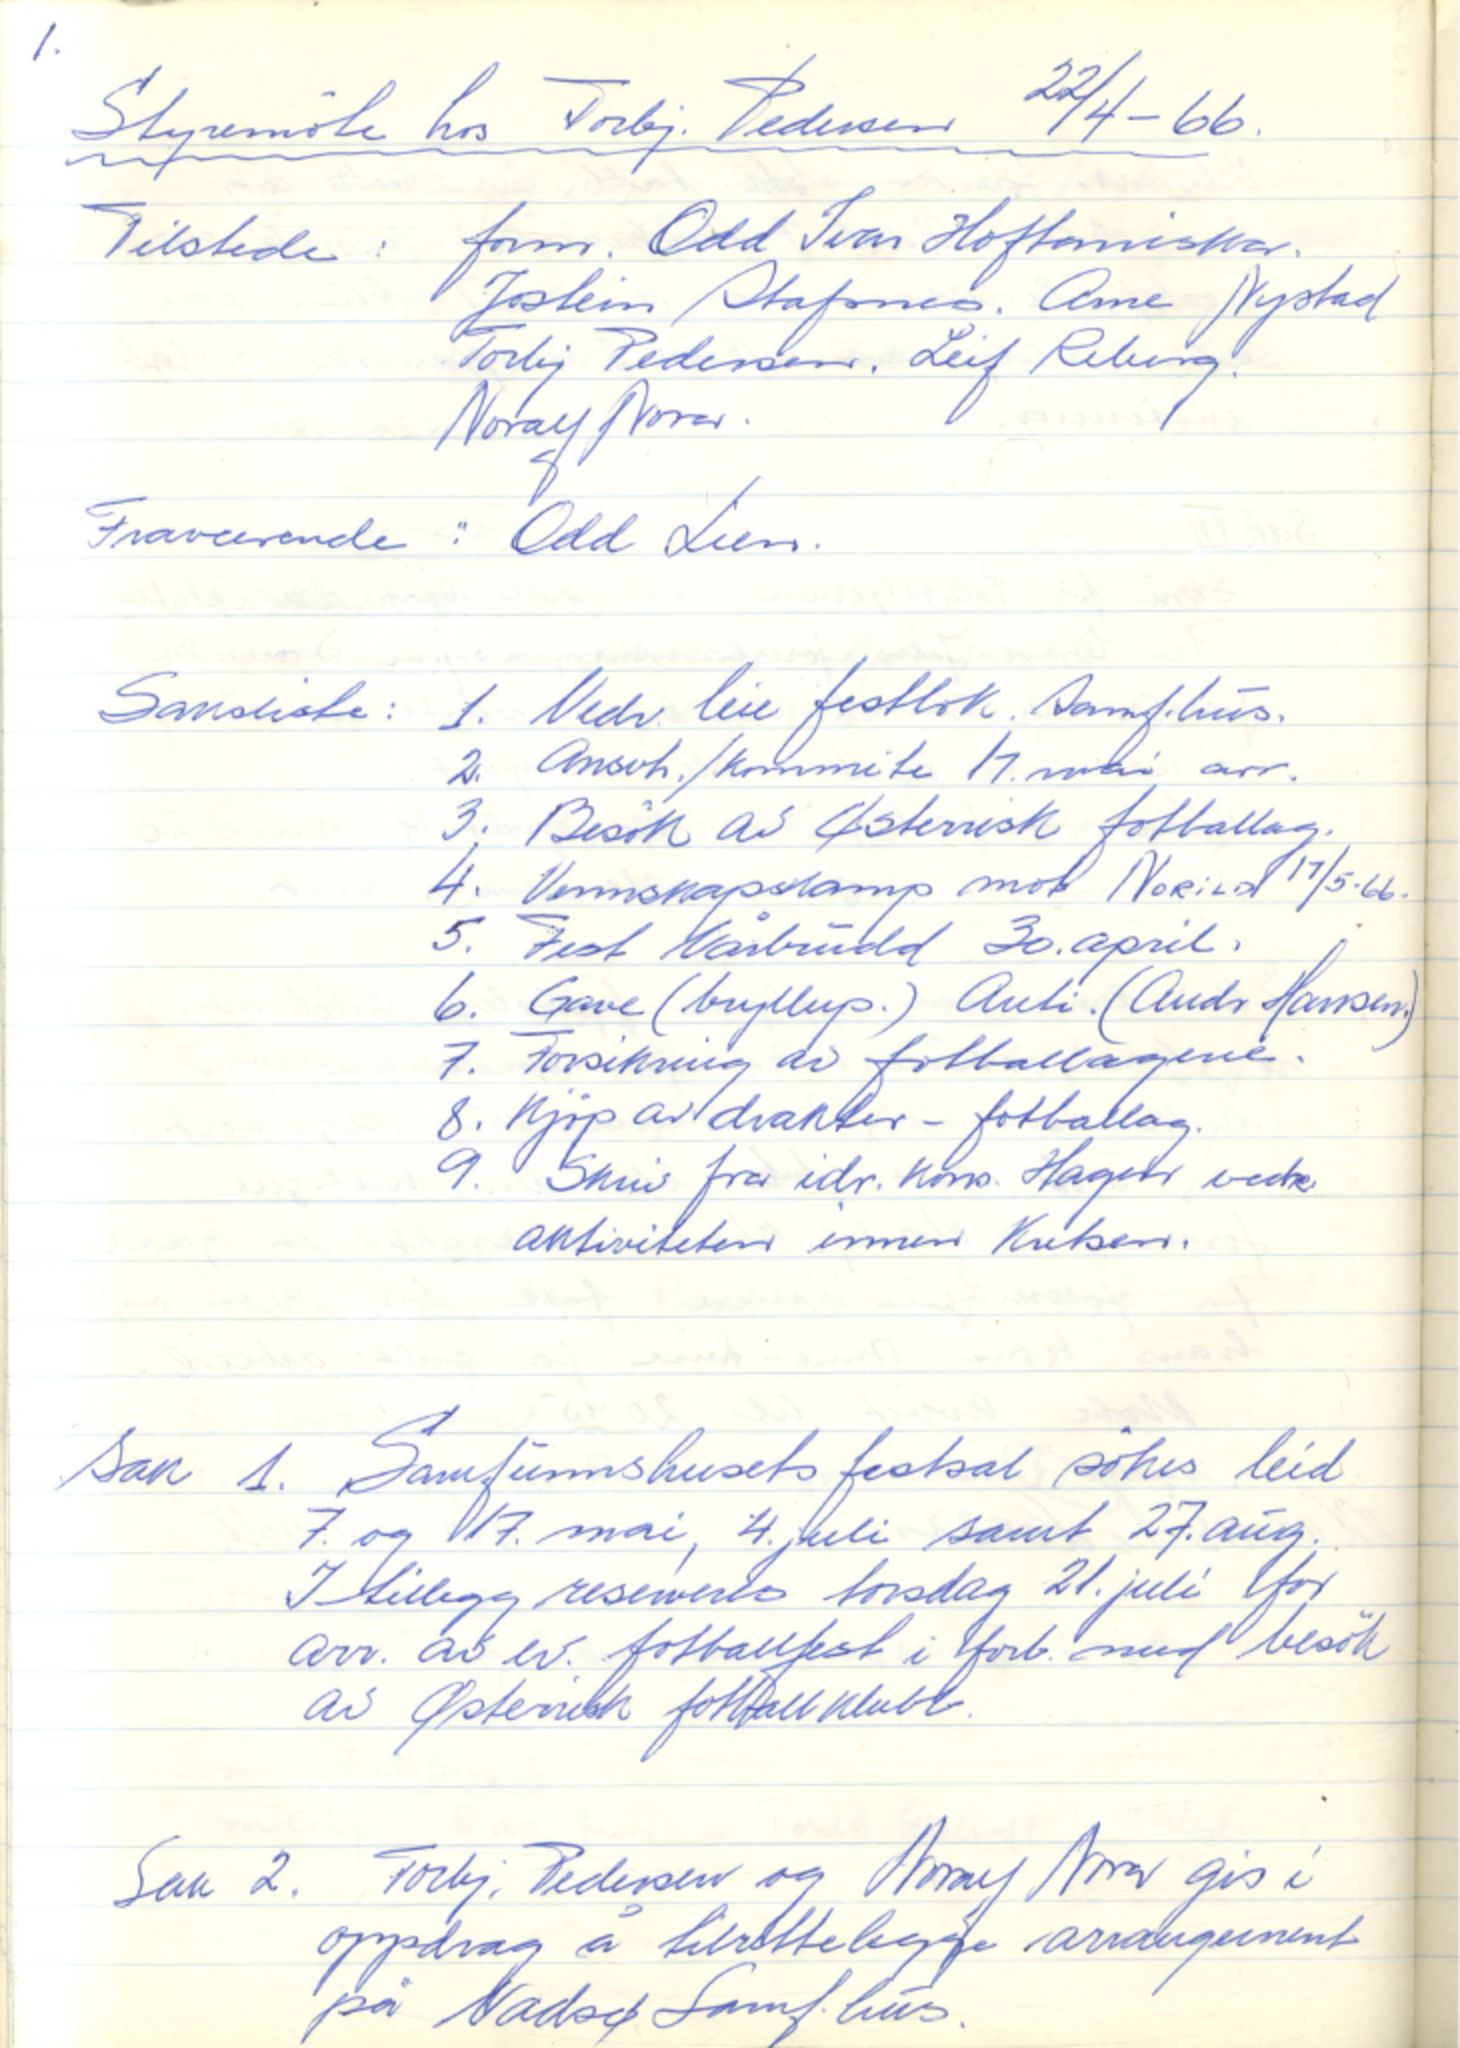 1.
Styremöte hos Torbj. Pedersen 22/4-66.
Tilstede: form. Odd Ivar Hoftaniskar.
Jostein Stafsnes. Arne Nystad
Torbj Pedersen. Leif Reberg.
Noralf Nora.
Fraværende: Odd Lien.
Saksliste: 1. Vedr. leie festlok. Samf.hus.
2. Ansvh./Kommite 17. mai arr.
3. Besök av Østerrisk fotballag.
4. Vennskapskamp mot NORILD 17/5-66.
5. Fest Vårbrudd 30. april.
6. Gave (bryllup.) Anti. (Andr Hansen.)
7. Forsikring av fotballagene.
8. Kjöp av drakter - fotballag.
9. Skriv fra idr. kons. Hagen vedr
aktiviteten innen Kretsen.
Sak 1. Samfunnshusets festsal sökes leid
7. og 17. mai, 4. juli samt 27. aug.
I tillegg reserveres torsdag 21. juli for
arr. av ev. fotballfest i forb. med besök
av Østerrisk fotballklubb.
Sak 2. Torbj. Pedersen og Noralf Nora gis i
oppdrag å tilrettelegge arrangement
på Vadsø Samf.hus.